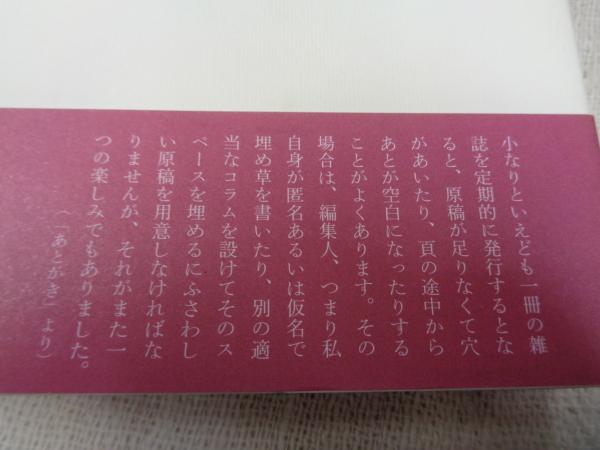 小なりといえども一冊の雑
誌を定期的に発行するとな
ると、原稿が足りなくて穴
があいたり、頁の途中から
あとが空白になったりする
ことがよくあります。その
場合は、編集人、つまり私
自身が匿名あるいは仮名で
埋め草を書いたり、別の適
当なコラムを設けてそのス
ペースを埋めるにふさわし
い原稿を用意しなければな
りませんが、それがまた一
つの楽しみでもありました。
（「あとがき」より）